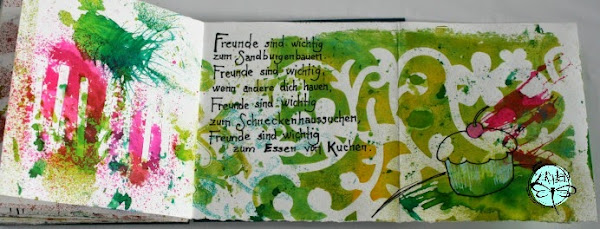 Freunde sind wichtig
zum Sandburgenbauen.
Freunde sind wichtig,
wenn andere dich hauen,
Freunde sind wichtig
zum Schneckenhaussuchen,
Freunde sind wichtig
zum Essen von Kuchen.